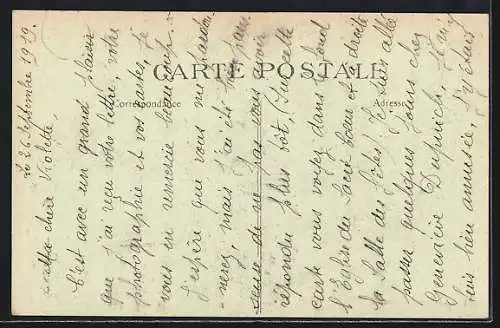 CARTE POSTALE
Correspondance
Adresse
Le 26 Septembre 1919.
Ma chère Violette,
C'est avec un grand plaisir
que j'ai reçu votre lettre, votre
photographie et vos cartes. Je
vous en remercie beaucoup.
J'espère que vous me pardon-
nerez, mais j'ai été
de ne pas vous avoir
répondu plus tôt. Sur cette
carte vous voyez dans le fond
l'Eglise du et à droite
la Salle des fêtes. Je suis allée
passer quelques jours chez
Geneviève
suis bien amusée.